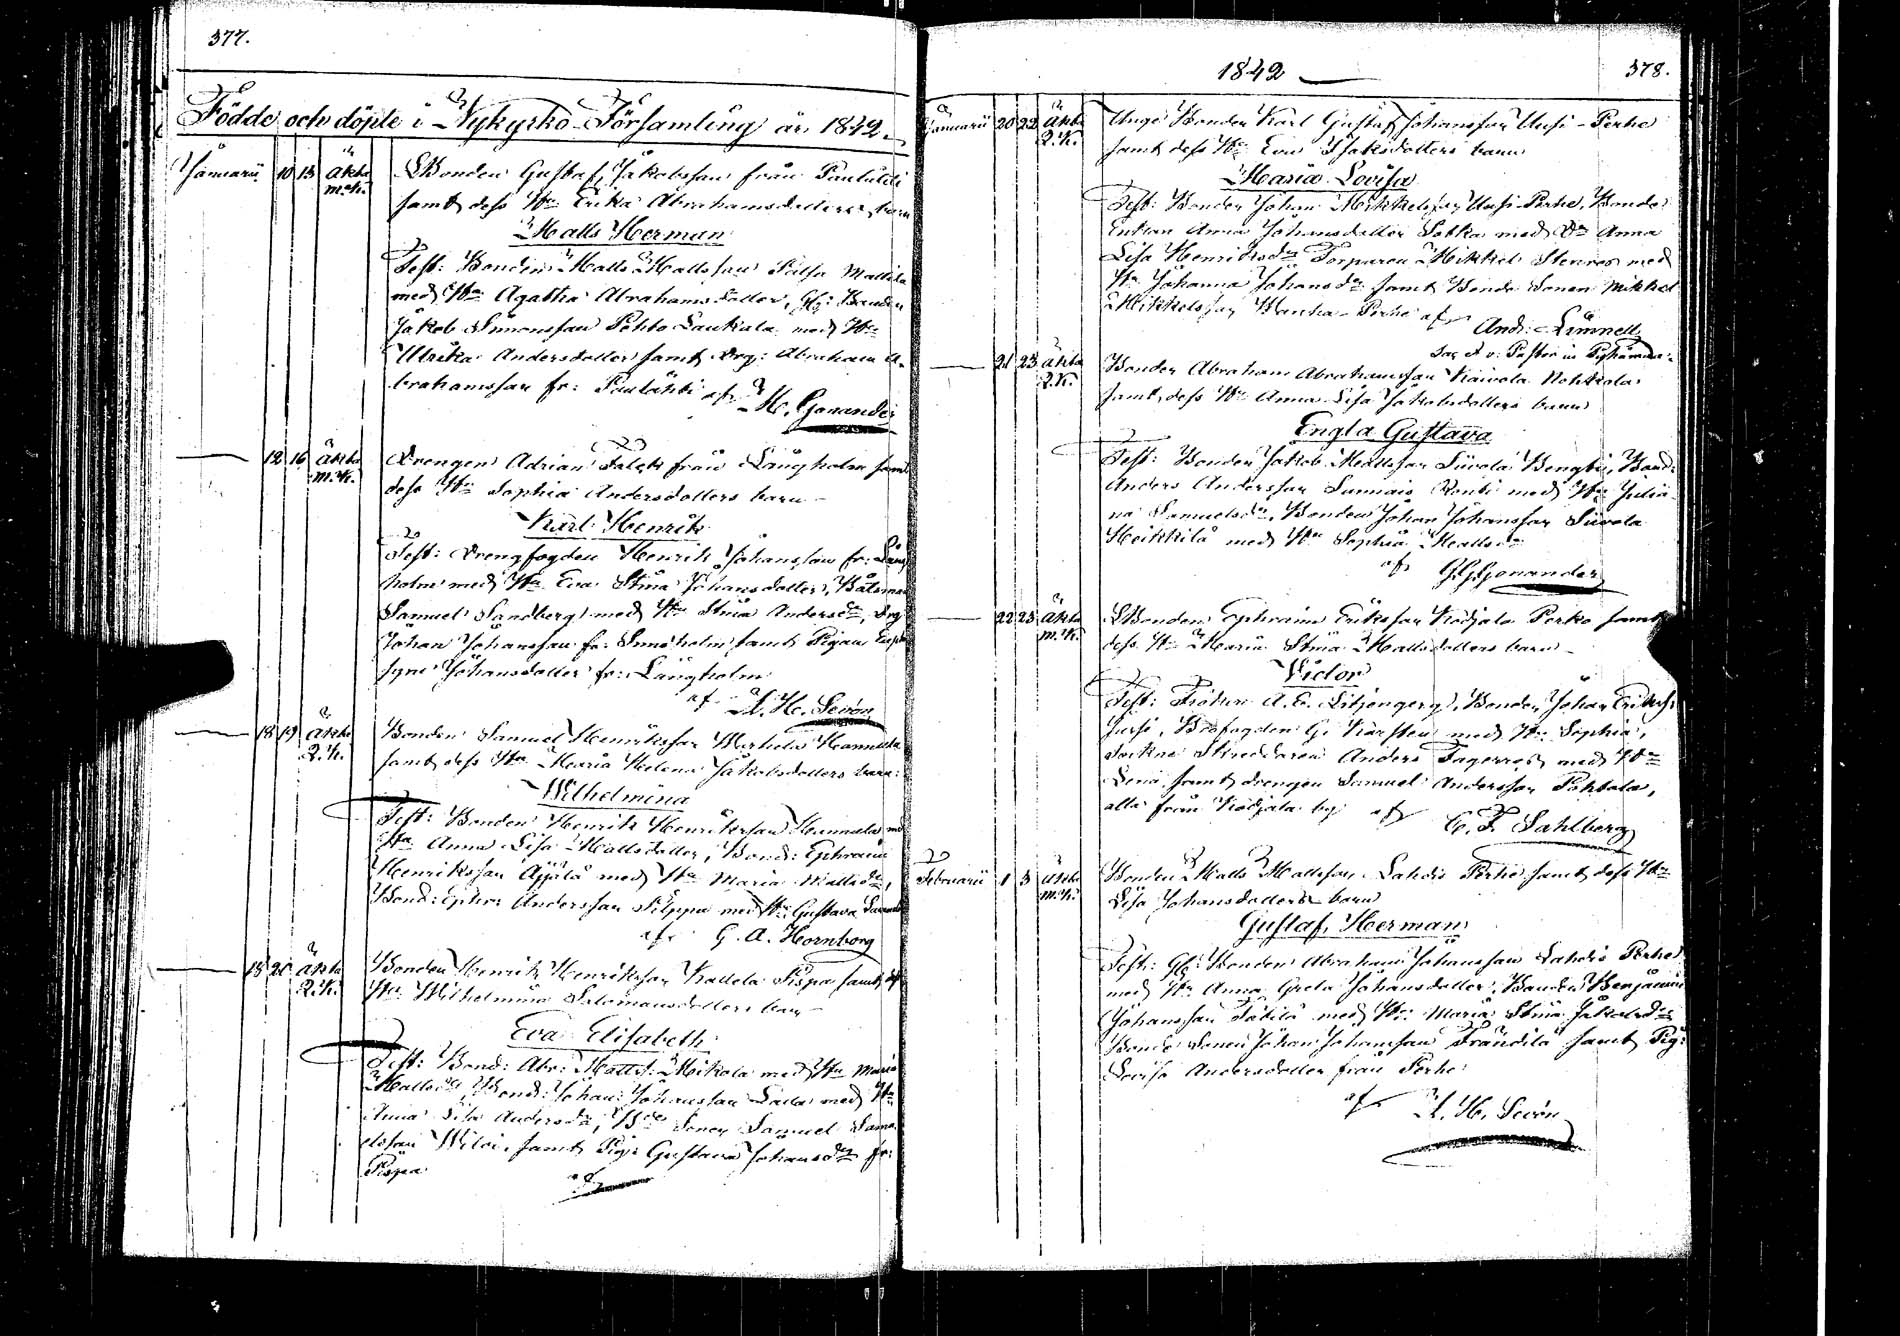 377.
Födde och döpte i Nykyrko Församling år 1842.
Januarii 10 13 äkta m.k. Bonden Gustaf Jakobsson från
samt dess Hu Erika Abrahamsdotters barn
Matts Herman
Test: Bonden Matts Mattsson
med Hu Agatha Abrahamsdotter, Gl: Bonden
Jakob Simonsson Pohto Laukala med Hu
Ulrika Andersdotter samt Drg: Abraham A-
brahamsson fr: af H. Gonander
12 16 äkta m.k. Drengen Adrian Falck från Långholm samt
dess Hu Sophia Andersdotters barn
Karl Henrik
Test: Drengfogden Henrik Johansson fr: Lång
holm med Hu Eva Stina Johansdotter, Båtsman
Samuel Sandberg med Hu Stina Andersdr, Drg
Johan Johansson fr: samt Pigan
Johansdotter fr: Långholm
af A. H. Sevón
18 19 äkta Q.K. Bonden Samuel Henriksson
samt dess Hu Maria Helena Jakobsdotters barn
Wilhelmina
Test: Bonden Henrik Henriksson Hannula med
Hu Anna Lisa Mattsdotter, Bond: Ephraim
Henriksson Äijälä med Hu Maria Mattsdr,
Bond: Ephr: Andersson Pilppa med Hu Gustava
af G. A. Hornborg
18 20 äkta Q.K. Bonden Henrik Henriksson Kallela Pispa samt
Hu Wilhelmina Salomonsdotters barn
Eva Elisabeth
Test: Bond: Abr: Matts: Mikola med Hu Maria
Mattsdr, Bond: Johan Johansson Lalla med Hu
Anna Lisa Andersdr, Bde Sonen Samuel Samu
elsson samt Pig: Gustava Johansdr fr:
Pispa
af
1842
378.
Januarii 20 22 äkta Q.K. Unge Bonden Karl Gustaf Johansson Uusi-Perhe
samt dess Hu Eva Isaksdotters barn
Maria Lovisa
Test: Bonden Johan Mikkelsson Uusi-Perhe, Bonde
Enkan Anna Johansdotter Sotka med Dr Anna
Lisa Henriksdr Torparen Mikkel Stenros med
Hu Johanna Johansdr samt Bonde Sonen Mikkel
Mikkelsson Perhe af And: Limnell
v: Pastor in Pyhämaa
21 23 äkta Q.K. Bonden Abraham Abrahamsson Kaivola
samt dess Hu Anna Lisa Jakobsdotters barn
Engla Gustava
Test: Bonden Jakob Mattsson Siivola Bengti, Bond:
Anders Andersson Sannais Ronti med Hu Julia
na Samuelsdr, Bonden Johan Johansson Siivola
Heikkilä med Hu Sophia Mattsdr
af G. G. Gonander
22 23 äkta m.k. Bonden Ephraim Eriksson Kodjala Perko samt
dess Hu Maria Stina Mattsdotters barn
Victor
Test: Fröken A. E. Bonden Johan Eriks:
Jussi, Brofogden G. Karsten med Hu Sophia,
Sockne Skreddaren Anders Fagerros med Hu
Lena samt drengen Samuel Andersson
alla från Kodjala by af C. F. Sahlberg
Februarii 1 3 äkta m.k. Bonden Matts Mattsson Lahdis Perhe samt dess Hu
Lisa Johansdotters barn
Gustaf Herman
Test: Gl: Bonden Abraham Johansson Lahdis Perhe
med Hu Anna Greta Johansdotter, Bonden Benjamin
Johansson med Hu Maria Stina Jakobsdr
Bonde Sonen Johan Johansson Frändilä samt Pig:
Lovisa Andersdotter från Perhe
af A. H. Sevón